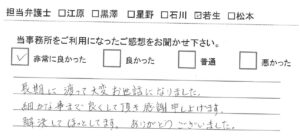 担当弁護士 □江原 □黒澤 □星野 □石川 ☑若生 □松本
当事務所をご利用になったご感想をお聞かせ下さい。
☑ 非常に良かった □ 良かった □ 普通 □ 悪かった
長期に渡って大変お世話になりました。
細かな事まで良くして頂き感謝申し上げます。
解決してほっとしてます。ありがとうございました。